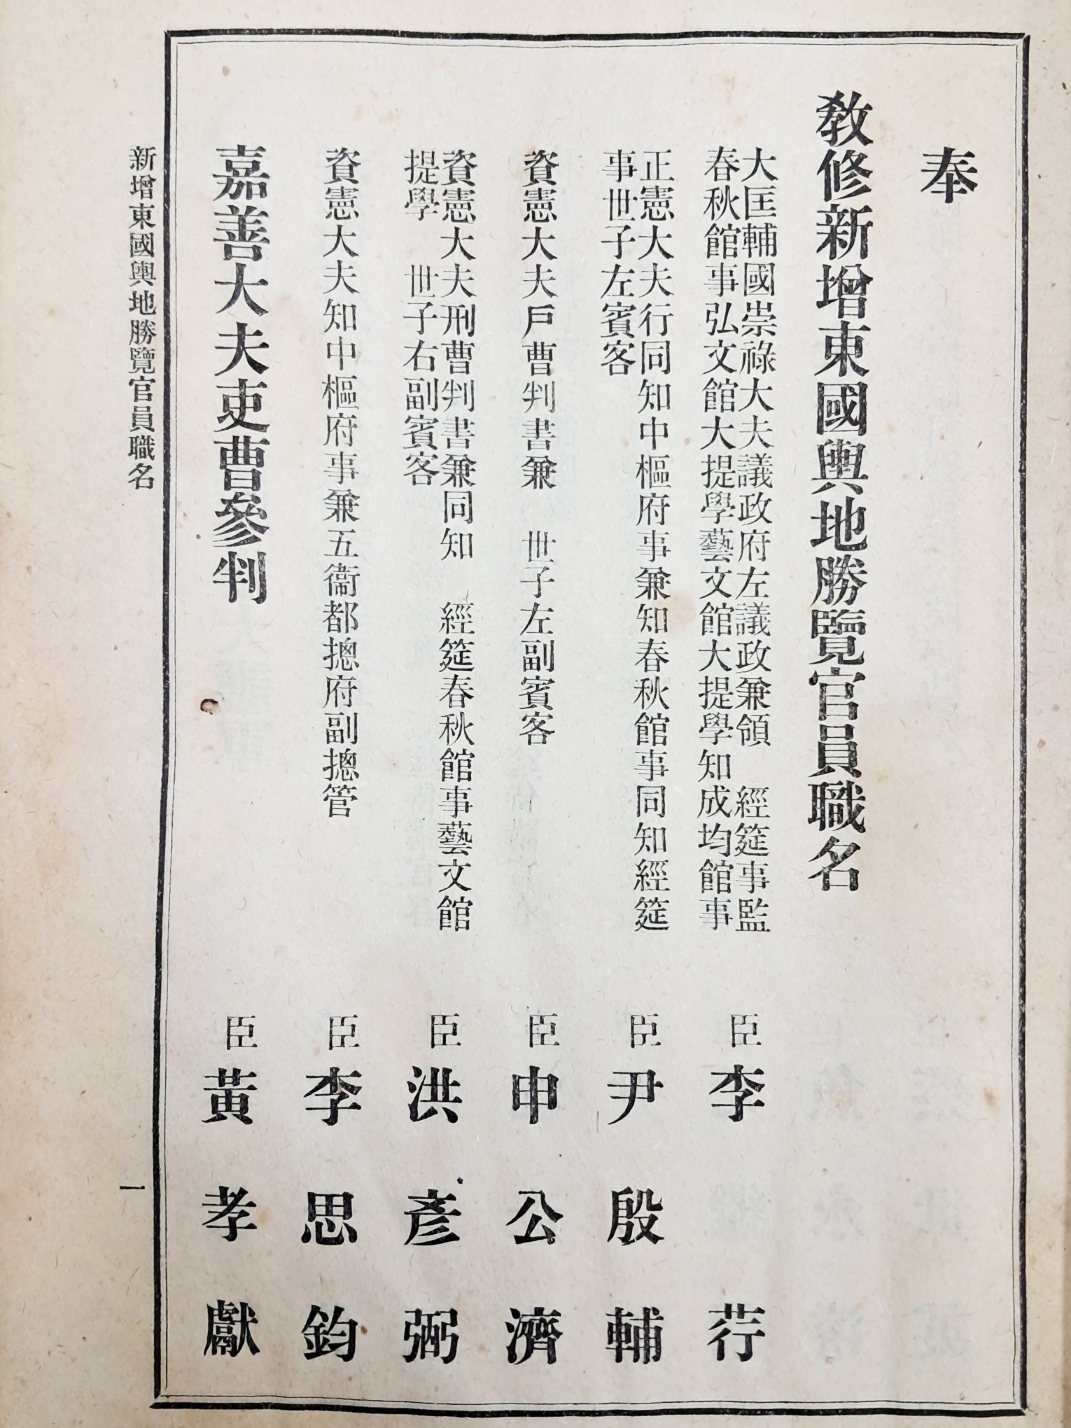 奉
教修新增東國輿地勝覽官員職名
大匡輔國崇祿大夫議政府左議政兼領　經筵事監
春秋館事弘文館大提學藝文館大提學知成均館事
臣李荇
正憲大夫行同知中樞府事兼知春秋館事同知經筵
事世子左賓客
臣尹殷輔
資憲大夫戶曹判書兼　世子左副賓客
臣申公濟
資憲大夫刑曹判書兼同知　經筵春秋館事藝文館
提學　世子右副賓客
臣洪彥弼
資憲大夫知中樞府事兼五衞都摠府副摠管
臣李思鈞
嘉善大夫吏曹參判
臣黃孝獻
新增東國輿地勝覽官員職名
一